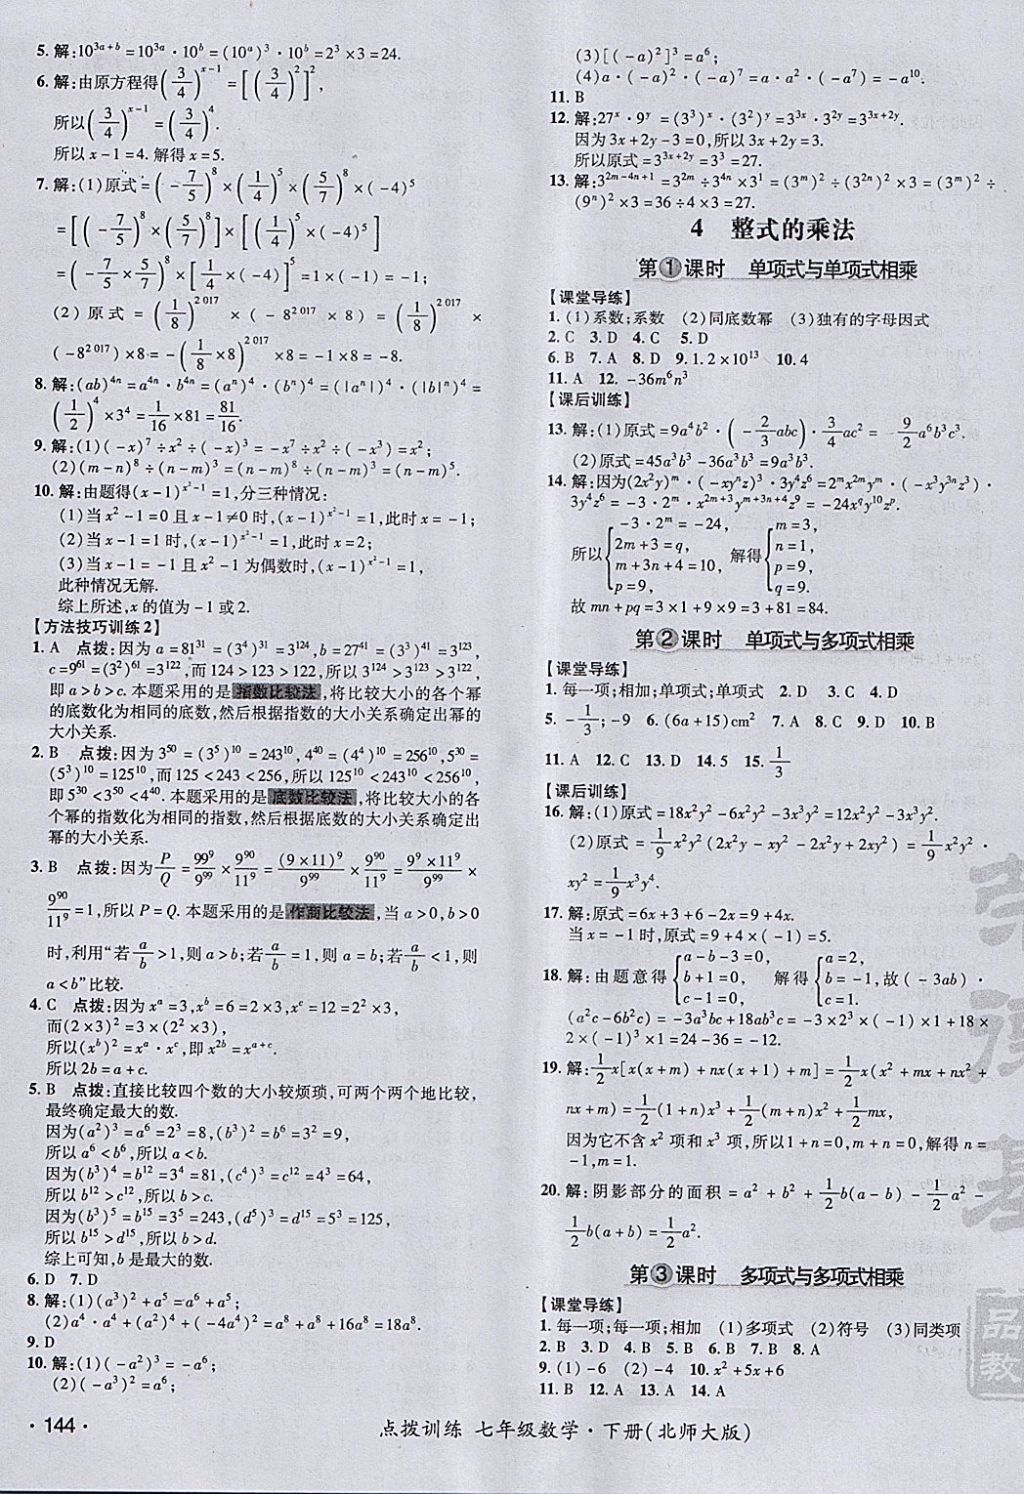 5. 解:10^{3a+b}=10^{3a}·10^b=(10^a)^3·10^b=2^3×3=24.
6. 解:由原方程得(3/4)^{x-1}=[(3/4)^2]^2,
所以(3/4)^{x-1}=(3/4)^4.
所以x-1=4.解得x=5.
7. 解:(1)原式=(-7/5)^8×(1/4)^5×(5/7)^8×(-4)^5
=[(-7/5)^8×(5/7)^8]×[(1/4)^5×(-4)^5]
=(-7/5×5/7)^8×[1/4×(-4)]^5=1×(-1)=-1.
(2)原式=(1/8)^{2017}×(-8^{2017}×8)=(1/8)^{2017}×
(-8^{2017})×8=-(1/8×8)^{2017}×8=-8.
8. 解:(ab)^{4n}=a^{4n}·b^{4n}=(a^n)^4·(b^n)^4=(|a^n|)^4·(|b|^n)^4=
(1/2)^4×3^4=1/16×81=81/16.
9. 解:(1)(-x)^7÷x^2÷(-x)^3=-x^7÷x^2÷(-x^3)=x^2;
(2)(m-n)^8÷(n-m)^3=(n-m)^8÷(n-m)^3=(n-m)^5.
10. 解:由题得(x-1)^{x^2-1}=1,分三种情况:
(1)当x^2-1=0且x-1≠0时,(x-1)^{x^2-1}=1,此时x=-1;
(2)当x-1=1时,(x-1)^{x^2-1}=1,此时x=2;
(3)当x-1=-1且x^2-1为偶数时,(x-1)^{x^2-1}=1,
此种情况无解.
综上所述,x的值为-1或2.
【方法技巧训练2】
1. A 点拨:因为a=81^{31}=(3^4)^{31}=3^{124},b=27^{41}=(3^3)^{41}=3^{123},
c=9^{61}=(3^2)^{61}=3^{122},而124>123>122,所以3^{124}>3^{123}>3^{122},
即a>b>c.本题采用的是指数比较法,将比较大小的各个幂
的底数化为相同的底数,然后根据指数的大小关系确定出幂的
大小关系.
2. B 点拨:因为3^{50}=(3^5)^{10}=243^{10},4^{40}=(4^4)^{10}=256^{10},5^{30}=
(5^3)^{10}=125^{10},而125<243<256,所以125^{10}<243^{10}<256^{10},
即5^{30}<3^{50}<4^{40}.本题采用的是底数比较法,将比较大小的各
个幂的指数化为相同的指数,然后根据底数的大小关系确定出
幂的大小关系.
3. B 点拨:因为P/Q=99^9/9^{99}×9^{90}/11^9=(9×11)^9/9^{99}×9^{90}/11^9=9^9×11^9/9^{99}×
9^{90}/11^9=1,所以P=Q.本题采用的是作商比较法,当a>0,b>0
时,利用“若a/b>1,则a>b;若a/b=1,则a=b;若a/b<1,则
a<b”比较.
4. C 点拨:因为x^a=3,x^b=6=2×3,x^c=12=2^2×3,
而(2×3)^2=3×(2^2×3),
所以(x^b)^2=x^a·x^c,即x^{2b}=x^{a+c}.
所以2b=a+c.
5. B 点拨:直接比较四个数的大小较烦琐,可两个两个地比较,
最终确定最大的数.
因为(a^2)^3=a^6=2^3=8,(b^3)^2=b^6=3^2=9,
所以a^6<b^6,所以a<b.
因为(b^3)^4=b^{12}=3^4=81,(c^4)^3=c^{12}=4^3=64,
所以b^{12}>c^{12},所以b>c.
因为(b^3)^5=b^{15}=3^5=243,(d^5)^3=d^{15}=5^3=125,
所以b^{15}>d^{15},所以b>d.
综上可知,b是最大的数.
6. D 7. D
8. 解:(1)(a^3)^2+a^5=a^6+a^5;
(2)a^4·a^4+(a^2)^4+(-4a^4)^2=a^8+a^8+16a^8=18a^8.
9. D
10. 解:(1)(-a^2)^3=-a^6;
(2)(-a^3)^2=a^6;
(3)[(-a)^2]^3=a^6;
(4)a·(-a)^2·(-a)^7=a·a^2·(-a^7)=-a^{10}.
11. B
12. 解:27^x·9^y=(3^3)^x·(3^2)^y=3^{3x}·3^{2y}=3^{3x+2y}.
因为3x+2y-3=0,所以3x+2y=3.
所以原式=3^{3x+2y}=3^3=27.
13. 解:3^{2m-4n+1}=3^{2m}÷3^{4n}×3^1=(3^m)^2÷(3^{2n})^2×3=(3^m)^2÷
(9^n)^2×3=6^2÷2^2×3=36÷4×3=27.
4 整式的乘法
第1课时 单项式与单项式相乘
【课堂导练】
1. (1)系数;系数 (2)同底数幂 (3)独有的字母因式
2. C 3. D 4. C 5. D
6. B 7. A 8. D 9. 1.2×10^{13} 10. 4
11. A 12. -36m^6n^3
【课后训练】
13. 解:(1)原式=9a^4b^2·(-2/3abc)·3/4ac^2=-9/2a^6b^3c^3.
(2)原式=45a^3b^3-36a^3b^3=9a^3b^3.
14. 解:因为(2x^2y)^m·(-xy^nz)^3·3y^4z^6=2^mx^{2m}y^m·(-x^3y^{3n}z^3)·
3y^4z^6=-3·2^m·x^{2m+3}y^{m+3n+4}z^9=-24x^qy^{10}z^p.
所以{-3·2^m=-24, 2m+3=q, m+3n+4=10, p=9, 解得{m=3, n=1, p=9, q=9.
故mn+pq=3×1+9×9=3+81=84.
第2课时 单项式与多项式相乘
【课堂导练】
1. 每一项;相加;单项式;单项式 2. D 3. C 4. D
5. -1/3;-9 6. (6a+15)cm^2 7. A 8. C 9. D 10. B
11. A 12. C 13. D 14. 5 15. 1/3
【课后训练】
16. 解:(1)原式=18x^2y^2-6x^2y^2-3x^3y^2=12x^2y^2-3x^3y^2.
(2)原式=1/9x^2y^2(2x^2y-xy^2-2x^2y+2xy^2)=1/9x^2y^2·
xy^2=1/9x^3y^4.
17. 解:原式=6x+3+6-2x=9+4x.
当x=-1时,原式=9+4×(-1)=5.
18. 解:由题意得{a-b-3=0, b+1=0, c-1=0, 解得{a=2, b=-1, c=1. 故(-3ab)·
(a^2c-6b^2c)=-3a^3bc+18ab^3c=-3×2^3×(-1)×1+18×
2×(-1)^3×1=24-36=-12.
19. 解:1/2x[x(x+m)+nx(x+1)+m]=1/2x(x^2+mx+nx^2+
nx+m)=1/2(1+n)x^3+1/2(m+n)x^2+1/2mx,
因为它不含x^2项和x^3项,所以1+n=0,m+n=0,解得n=
-1,m=1.
20. 解:阴影部分的面积=a^2+b^2+1/2b(a-b)-1/2a^2-
1/2b(a+b)=1/2a^2.
第3课时 多项式与多项式相乘
【课堂导练】
1. 每一项;每一项;相加 (1)多项式 (2)符号 (3)同类项
2. B 3. D 4. B 5. D 6. B 7. B 8. A
9. (1)-6 (2)-4 10. x^2+5x+6
11. B 12. A 13. A 14. A
·144· 点拨训练 七年级数学·下册(北师大版)
品
教